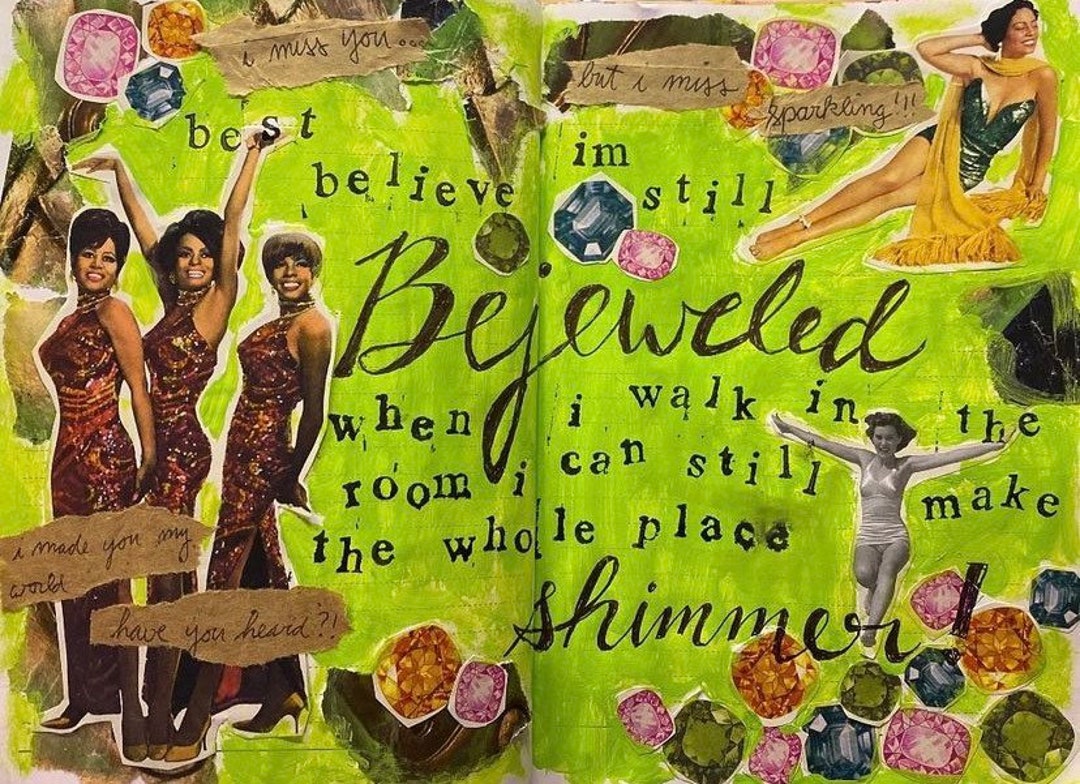 i miss you...
but i miss
sparkling!!!
best
believe
im
still
Bejeweled
when i walk in the
room i can still make
the whole place
shimmer!
i made you my
world
have you heard?!